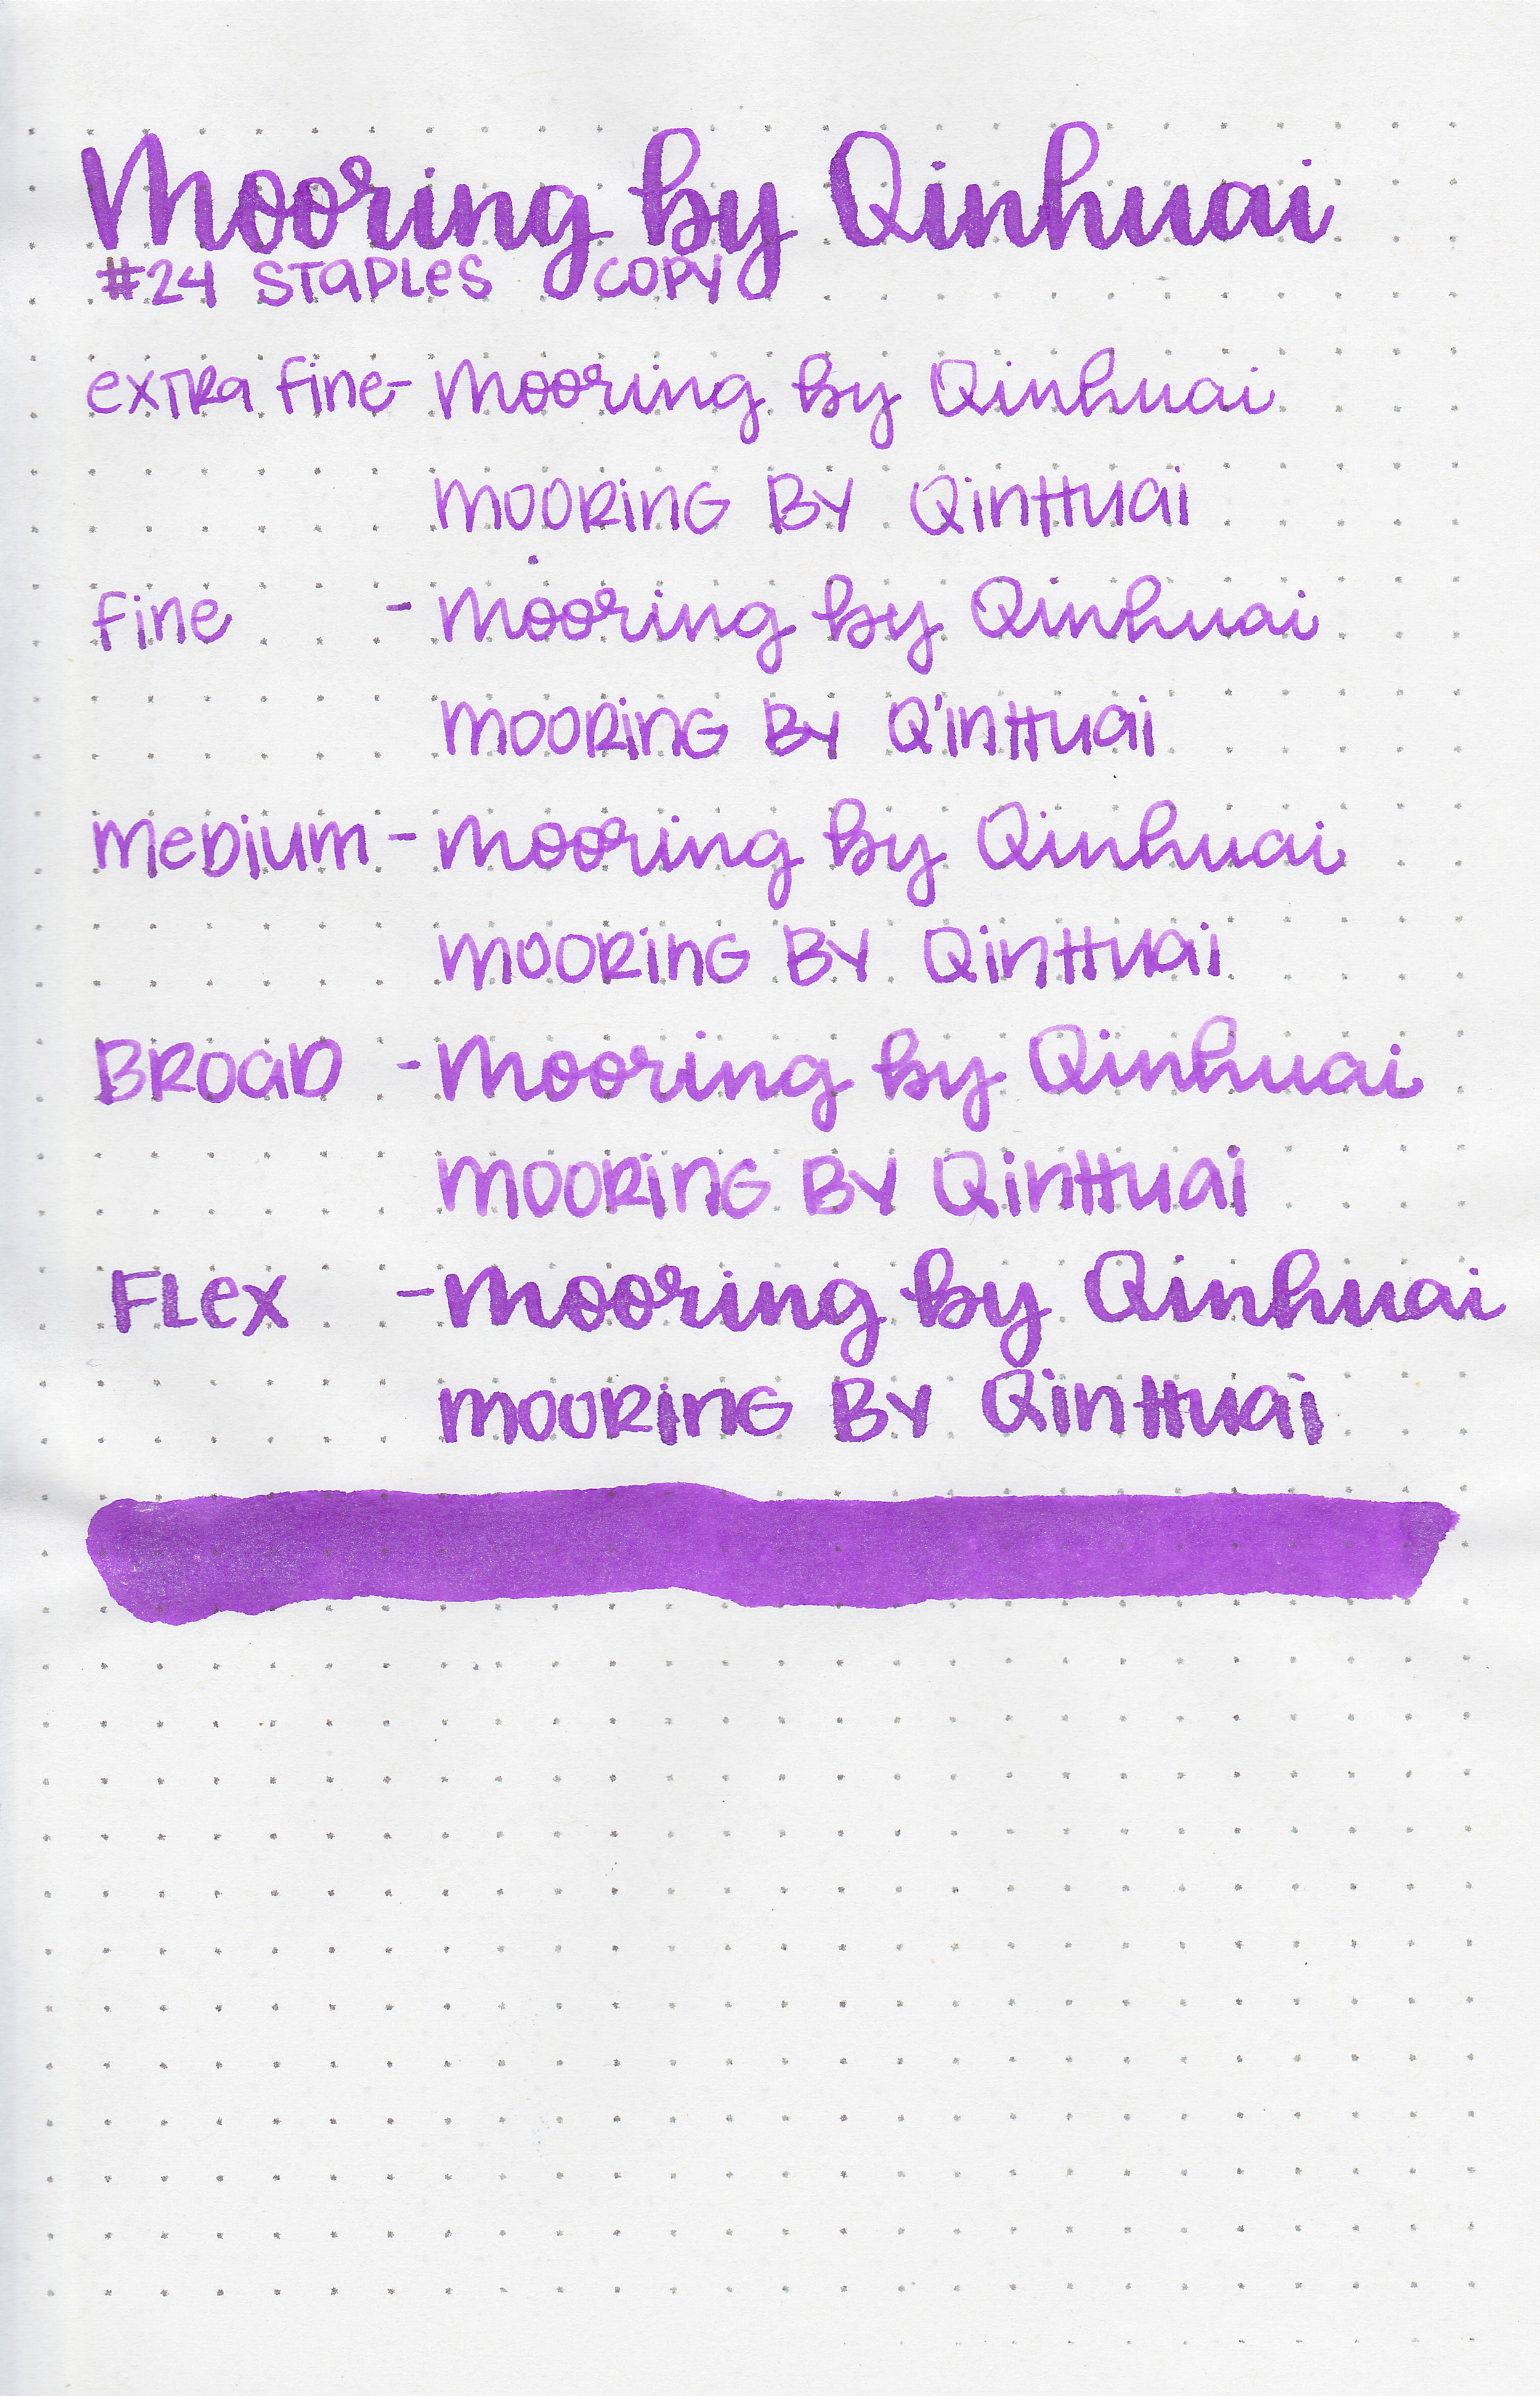 Mooring by Qinhuai
#24 STAPLES COPY
extra fine- Mooring by Qinhuai
MOORING BY QinHuai
fine - Mooring by Qinhuai
MOORING BY QinHuai
MeDium - Mooring by Qinhuai
MOORING BY QinHuai
BROAD - Mooring by Qinhuai
MOORING BY QinHuai
FLex - Mooring by Qinhuai
MOORING BY QinHuai